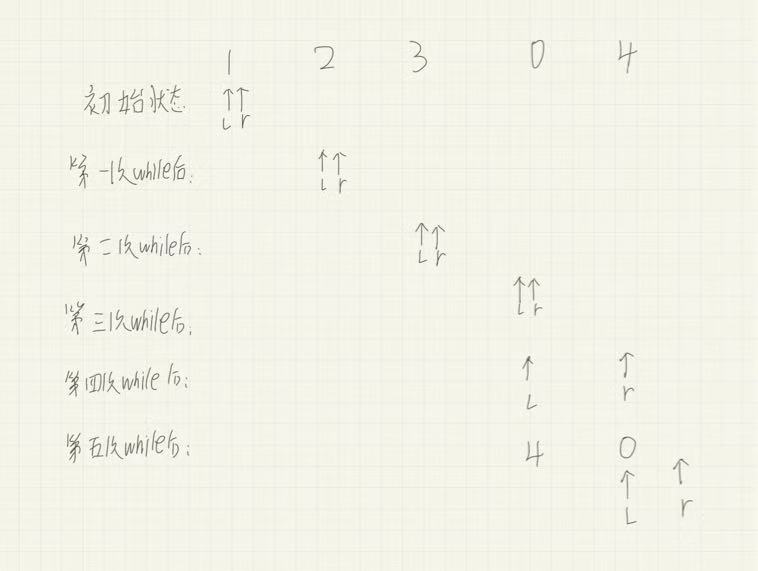 1 2 3 0 4
初始状态 ↑↑
L r
第一次while后: ↑↑
L r
第二次while后: ↑↑
L r
第三次while后: ↑↑
L r
第四次while后: ↑ ↑
L r
第五次while后: 4 0
↑ ↑
L r